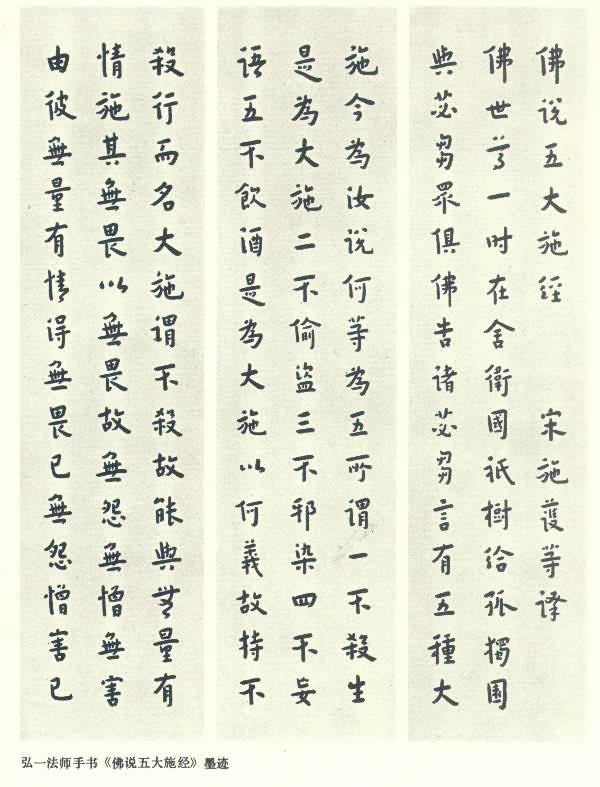 佛说五大施经 宋施護等译
佛世尊一时在舍衛國祇樹给孤獨園
與苾芻眾俱佛告诸苾芻言有五種大
施今為汝说何等為五所谓一不殺生
是為大施二不偷盜三不邪染四不妄
语五不飲酒是為大施以何義故持不
殺行而名大施谓不殺故能與無量有
情施其無畏以無畏故無怨無憎無害
由彼無量有情得無畏已無怨憎害已
弘一法师手书《佛说五大施经》墨迹